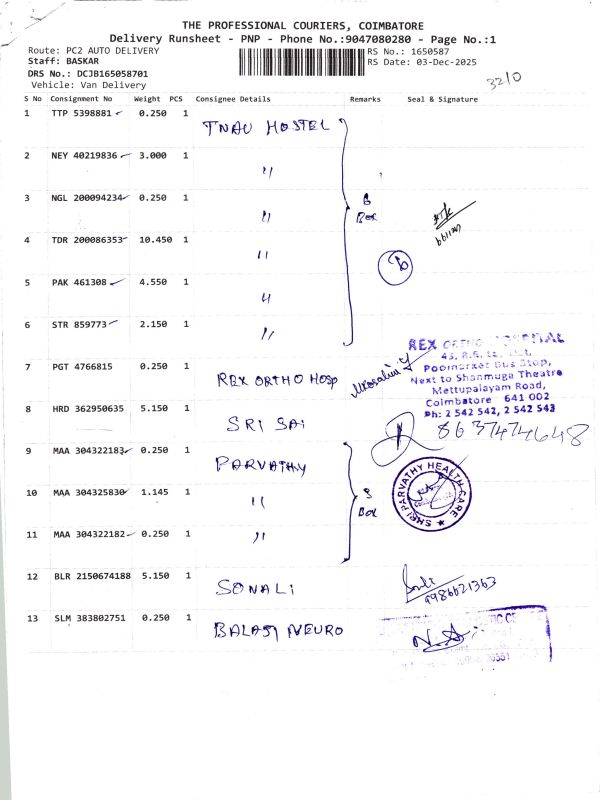 THE PROFESSIONAL COURIERS, COIMBATORE
Delivery Runsheet - PNP - Phone No.:9047080280 - Page No.:1
Route: PC2 AUTO DELIVERY
RS No.: 1650587
Staff: BASKAR
RS Date: 03-Dec-2025
DRS No.: DCJB165058701
Vehicle: Van Delivery
3210
S No Consignment No Weight PCS Consignee Details Remarks Seal & Signature
1 TTP 5398881 0.250 1 TNAU HOSTEL
2 NEY 40219836 3.000 1 "
3 NGL 200094234 0.250 1 "
6 Box
4 TDR 200086353 10.450 1 "
5 PAK 461308 4.550 1 "
6 STR 859773 2.150 1 "
REX ORTHO HOSPITAL
Poomarket Bus Stop,
Next to Shanmuga Theatre
Mettupalayam Road,
Coimbatore 641 002
Ph: 2 542 542, 2 542 543
7 PGT 4766815 0.250 1 REX ORTHO HOSP
8 HRD 362950635 5.150 1 SRI SAI
8637474648
9 MAA 304322183 0.250 1 PARVATHY
SHRI PARVATHY HEALTH CARE
10 MAA 304325830 1.145 1 "
3 Box
11 MAA 304322182 0.250 1 "
12 BLR 2150674188 5.150 1 SONALI
9986621363
13 SLM 383802751 0.250 1 BALAJI NEURO